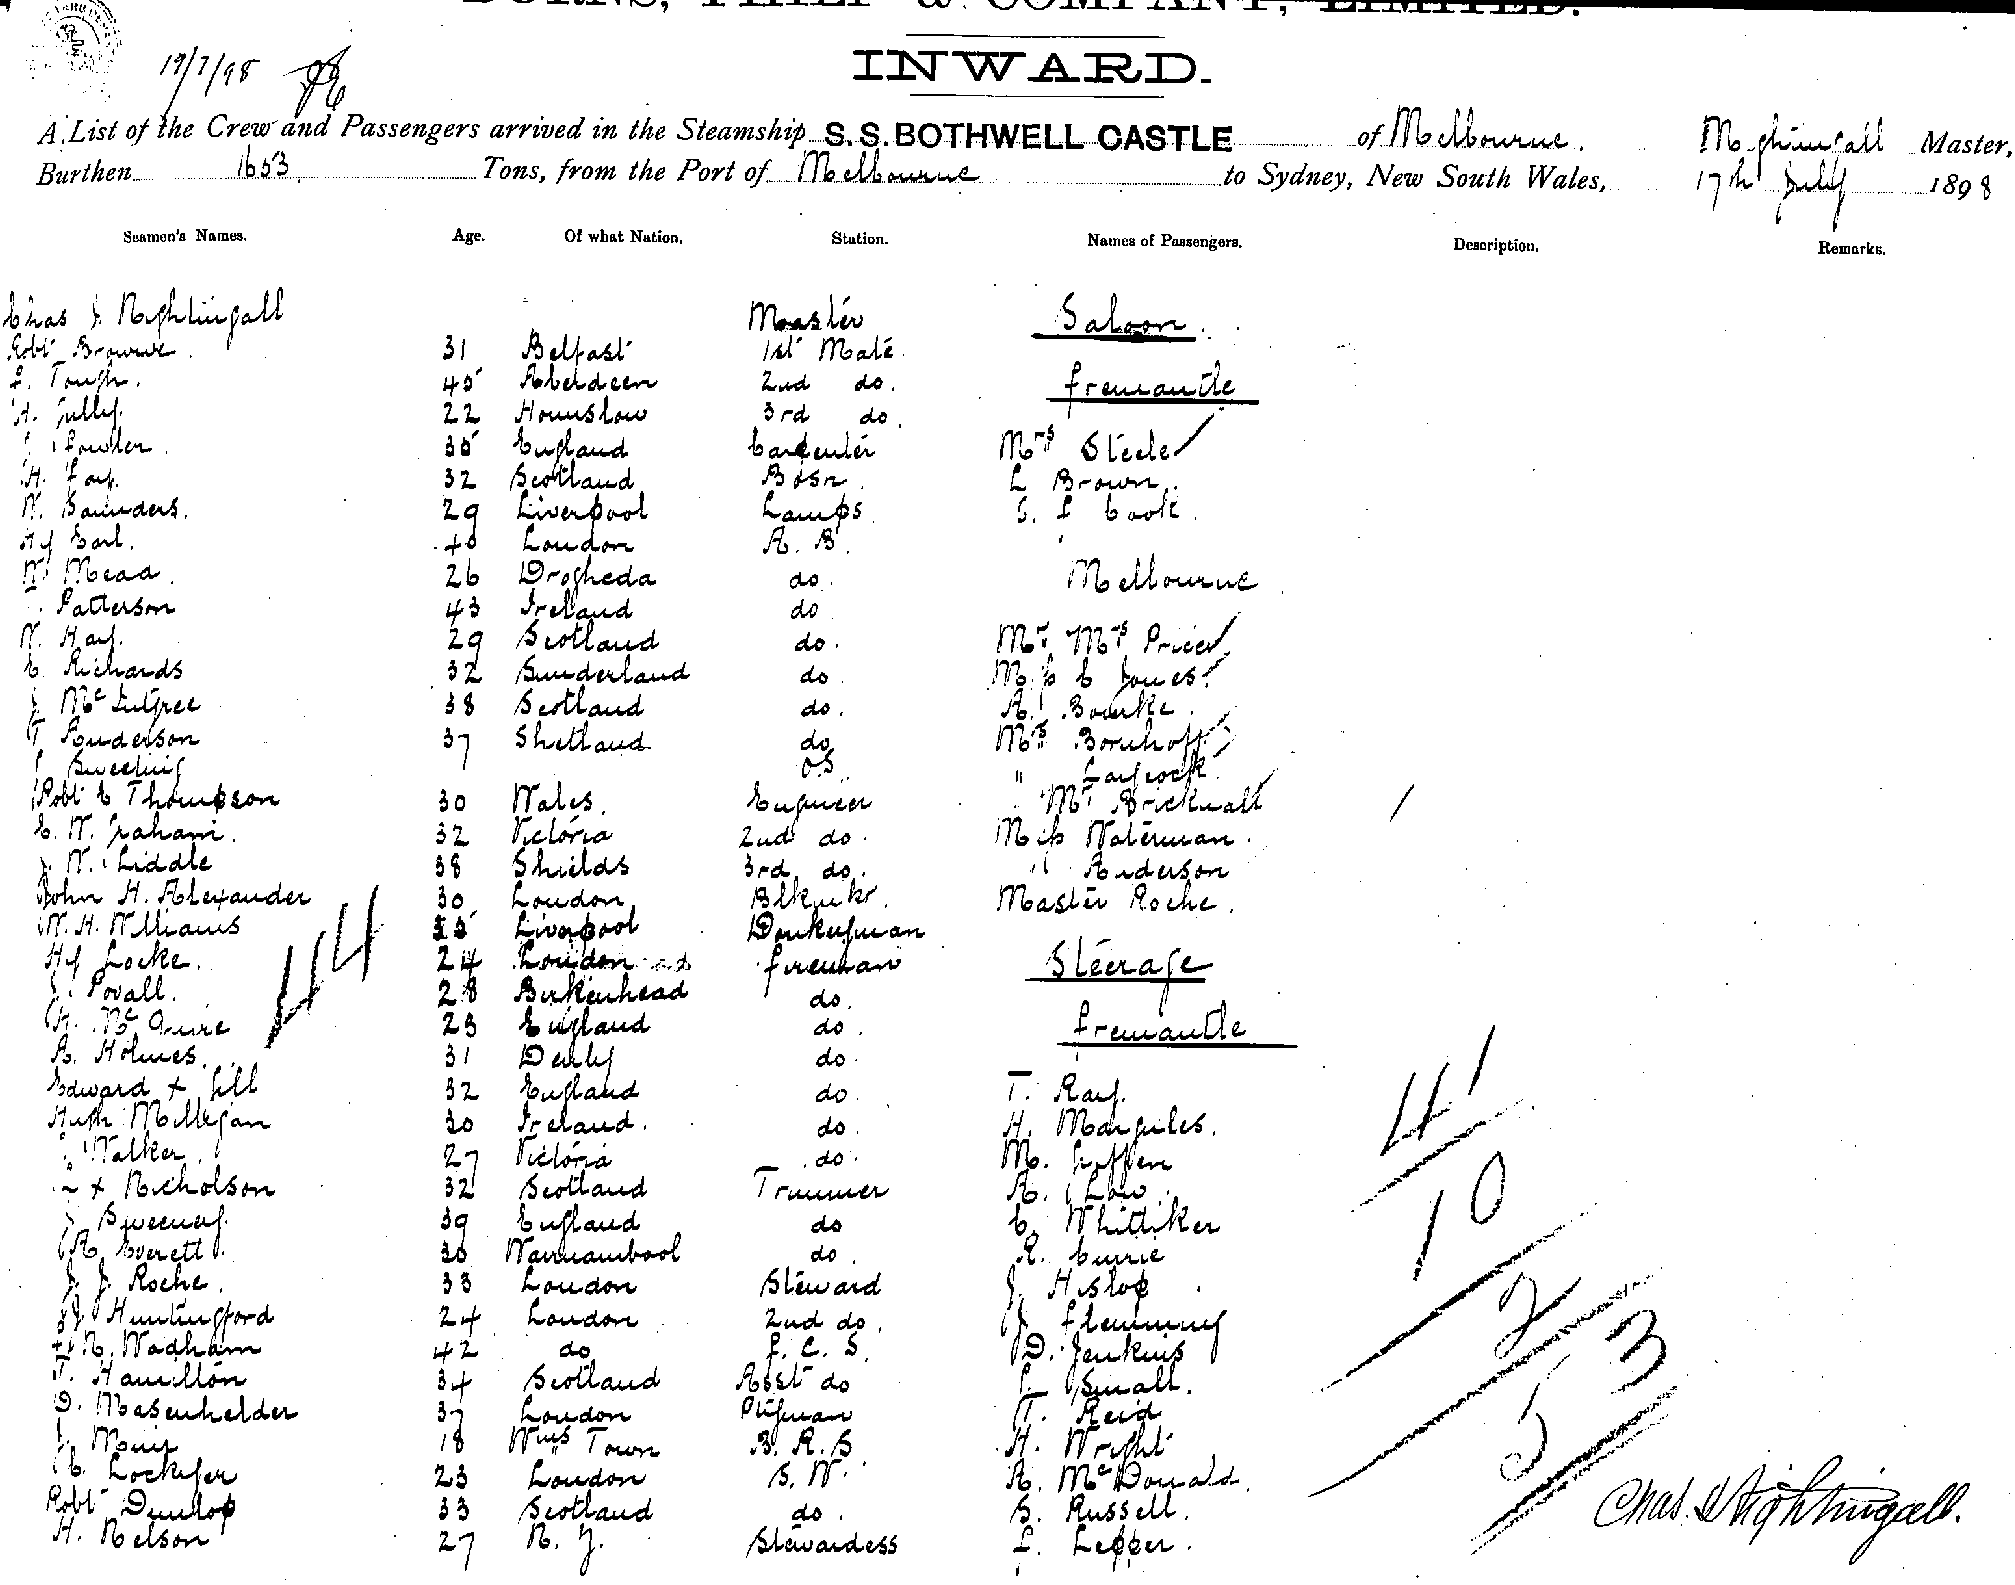 BURNS, PHILP & COMPANY, LIMITED.
INWARD.
19/7/98
A List of the Crew and Passengers arrived in the Steamship S.S. BOTHWELL CASTLE of Melbourne. Nightingall Master,
Burthen 1653 Tons, from the Port of Melbourne to Sydney, New South Wales, 17th July 1898
Seamen's Names. Age. Of what Nation. Station. Names of Passengers. Description. Remarks.
Chas J. Nightingall Master Saloon.
Robt Browne 31 Belfast 1st Mate
F. Tough. 45 Aberdeen 2nd do. Fremantle
H. Gully. 22 Hounslow 3rd do.
Fowler 35 England Carpenter Mrs Steele
H. Fay. 32 Scotland Bosn L Brown.
W. Saunders. 29 Liverpool Lamps S. F Cook.
Hy Earl. 40 London A. B.
W. Mead 26 Drogheda do. Melbourne
Patterson 43 Ireland do
W. Hay. 29 Scotland do. Mr Mrs Price
C Richards 32 Sunderland do Miss C Jones.
J. McIntyree 38 Scotland do. A. Bourke.
T Anderson 37 Shetland do Mrs Bornhoft
Sweeting O.S. " Laycock
Robt E Thompson 30 Wales. Engineer Mr Bricknall
E. W. Graham. 32 Victoria 2nd do. Miss Waterman.
J. W. Liddle 38 Shields 3rd do. " Anderson
John H. Alexander 30 London Blksmkr. Master Roche.
W. H. Williams Liverpool Donkeyman
Hy Locke. 24 London fireman Steerage
J. Povall. 28 Birkenhead do.
H. McGuire 23 England do. Fremantle
A. Holmes. 31 Derby do.
Edward + Gill 32 England do. T. Ray.
Hugh Milligan 30 Ireland. do. H. Margules.
Walker. 27 Victoria do. M.
+ Nicholson 32 Scotland Trimmer A. Low.
Sweeney. 39 England do C. Whittiker
A. Everett. 30 Warrnambool do. R. Currie
J. J. Roche. 33 London Steward J. Hislop
J. Huntingford 24 London 2nd do. J. Flemming
H N. Wadham 42 do F. C. S. D. Jenkins
T. Hamilton 34 Scotland Asst do Small.
D. Masenhelder 37 London T. Reid
J. Muir 18 Wms Town B. R. S H. Wright
C. Lockyer 23 London S. W. A. McDonald.
Robt Dunlop 33 Scotland do. S. Russell.
H. Nelson 27 N. Z. Stewardess F. Lepper.
44
41
10
2
53
Chas. J Nightingall.